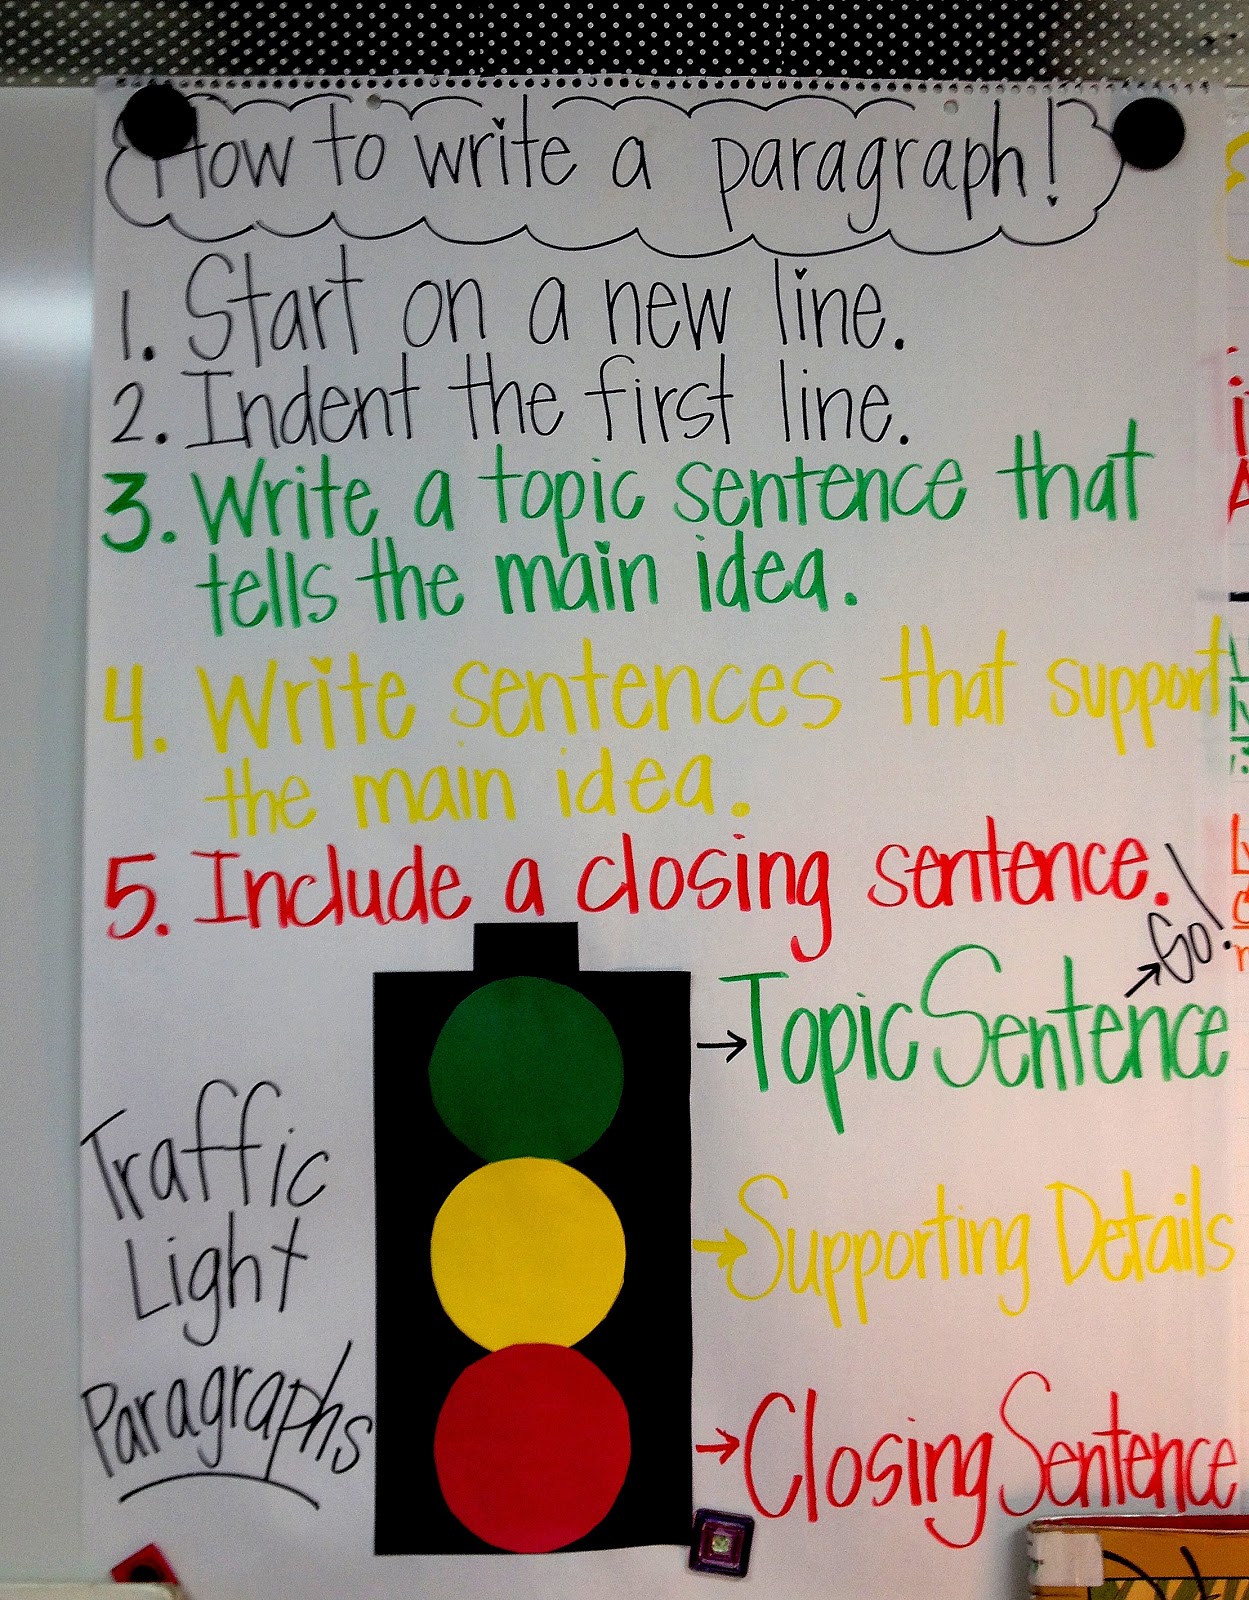 How to write a paragraph!
1. Start on a new line.
2. Indent the first line.
3. Write a topic sentence that
tells the main idea.
4. Write sentences that support
the main idea.
5. Include a closing sentence.
→Go!
→Topic Sentence
Traffic
Light
Paragraphs
→Supporting Details
→Closing Sentence